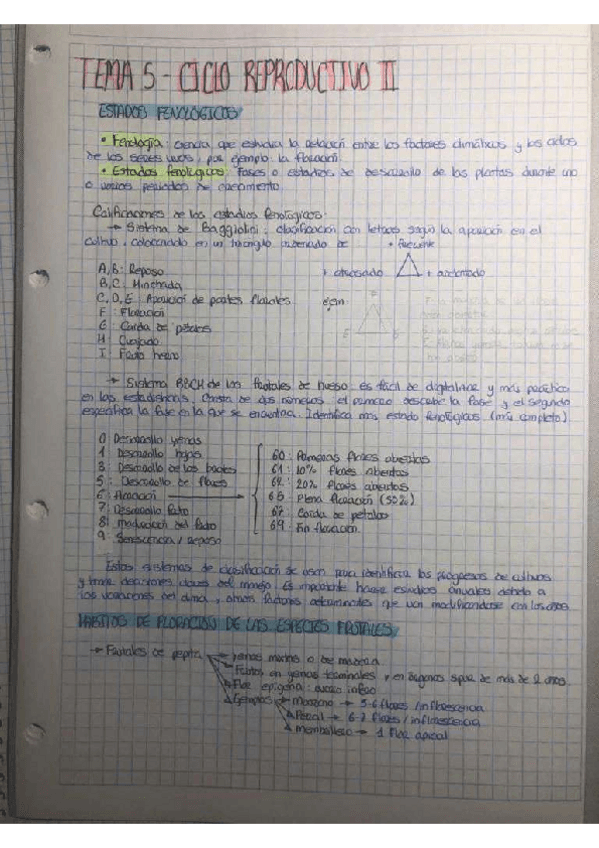 TEMA 5 - CICLO REPRODUCTIVO II
ESTADOS FENOLÓGICOS
• Fenología: ciencia que estudia la relación entre los factores climáticos y los ciclos
de los seres vivos, por ejemplo: la floración.
• Estados fenológicos: Fases o estadios de desarrollo de las plantas durante uno
o varios periodos de crecimiento.
Calificaciones de los estadios fenológicos:
→ Sistema de Baggiolini: clasificación con letras según la aparición en el
cultivo, colocandolo en un triangulo ordenado de
+ frecuente
+ atrasado
+ adelantado
A, B: Reposo
B, C: Hinchada
C, D, E: Aparición de partes florales
F: Floración
G: Caída de pétalos
H: Cuajado
I: Fruto tierno
→ Sistema BBCH de los frutales de hueso: es fácil de digitalizar y más práctico
en las estadísticas. Consta de dos números: el primero describe la fase y el segundo
especifica la fase en la que se encuentra. Identifica más estado fenológicos. (más completo)
0 Desarrollo yemas
1 Desarrollo hojas
3: Desarrollo de los brotes
5: Desarrollo de flores
6: Floración
7: Desarrollo fruto
8: maduración del fruto
9: Senescencia / reposo
60: Primeras flores abiertas
61: 10% flores abiertas
62: 20% flores abiertas
65: Plena floración (50%)
67: Caída de pétalos
69: Fin floración.
Estos sistemas de clasificación se usan para identificar los progresos de cultivos
y tomar decisiones claves del manejo. Es importante hacer estudios anuales debido a
las variaciones del clima, u otros factores determinantes que van modificandose con los años
HÁBITOS DE FLORACIÓN DE LAS ESPECIES FRUTALES
→ Frutales de pepita
→ yemas mixtas o de madera
Flores en yemas terminales y en órganos de más de 2 años.
Flor epígina: ovario infero
Ejemplos → Manzano → 5-6 flores / inflorescencia
Peral → 6-7 flores / inflorescencia
membrillero → 1 flor apical